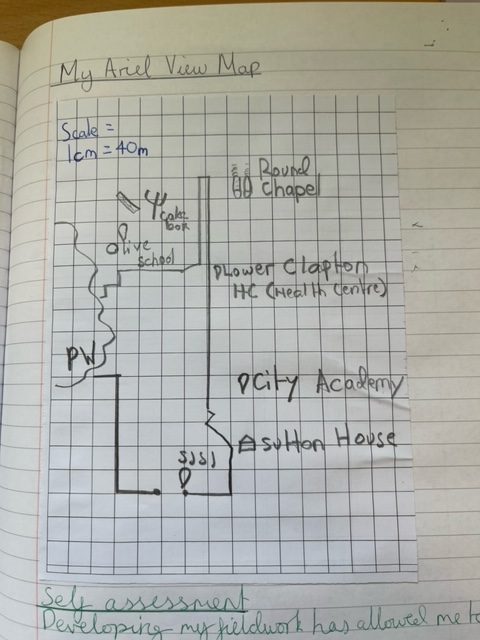 My Ariel View Map
Scale =
1cm = 40m
Round
Chapel
Cake
box
Olive
school
Lower Clapton
HC (Health Centre)
PW
City Academy
Sutton House
SJSJ
Self assessment
Developing my fieldwork has allowed me to